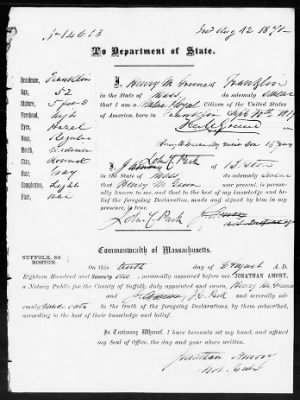 No 14613 Aug 12 1871
To Department of State.
Residence, Franklin
Age, 52
Stature, 5 feet 8
Forehead, high
Eyes, Hazel
Nose, Regular
Mouth, Medium
Chin, Round
Hair, Gray
Complexion, Light
Face,
I, Henry M Greene of Franklin
in the State of Mass. do solemnly swear
that I am a Native Loyal Citizen of the United States
of America born in Franklin Sept 1819
I, John C Park of Boston
in the State of Mass do solemnly swear
that Henry M Greene now present, is person-
ally known to me, and that to the best of my knowledge and belief
the foregoing Declaration, made and signed by him in my
presence, is true.
John C Park
Commonwealth of Massachusetts.
SUFFOLK, SS:
BOSTON.
On this tenth day of August A. D.
Eighteen Hundred and Seventy One, personally appeared before me JONATHAN AMORY,
a Notary Public for the County of Suffolk, duly appointed and sworn, Henry M Greene
and J C Park and severally
made oath to the truth of the foregoing Declarations, by them subscribed,
according to the best of their knowledge and belief.
In Testimony Whereof, I have hereunto set my hand, and affixed
my Seal of Office, the day and year above written.
Jonathan Amory
Not. Pub.